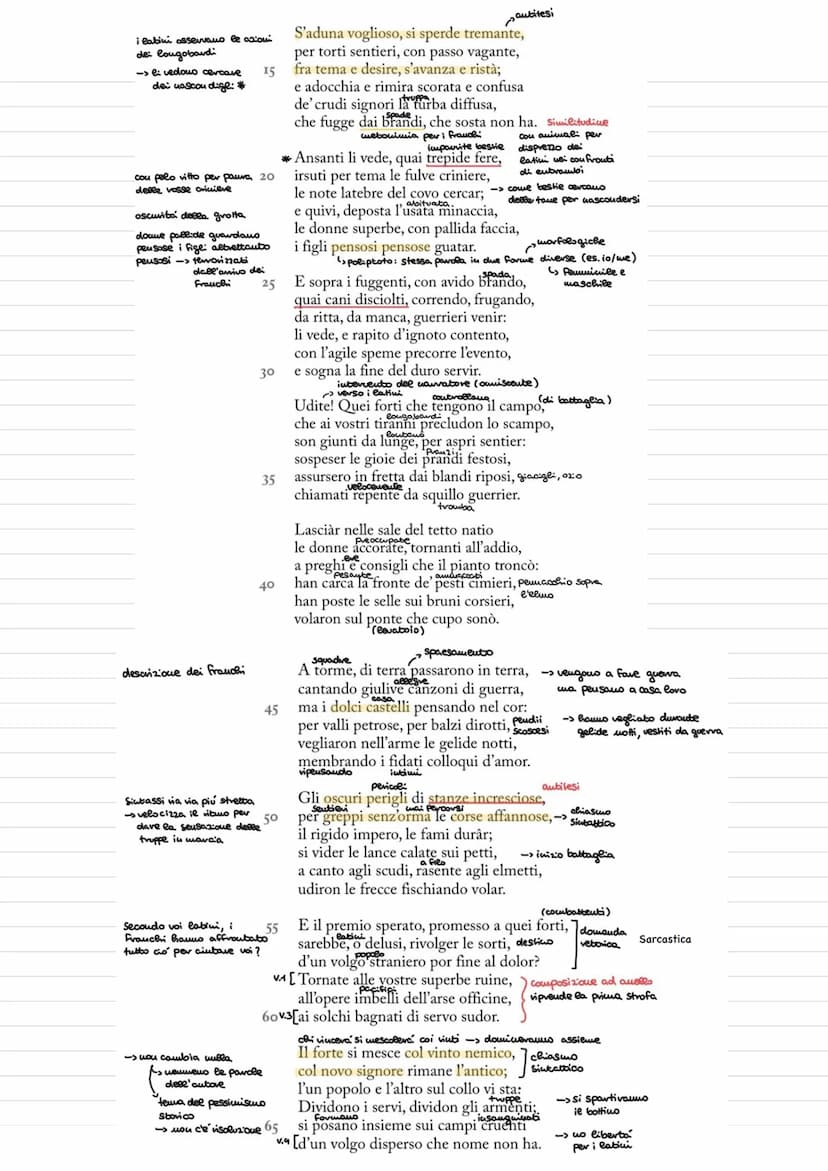 antitesi
S'aduna voglioso, si sperde tremante,
per torti sentieri, con passo vagante,
15 fra tema e desire, s'avanza e ristà;
e adocchia e rimira scorata e confusa
truppa
de' crudi signori la turba diffusa,
spade
che fugge dai brandi, che sosta non ha.
i latini osservano le azioni
dei longobardi
→ li vedono cercare
dei nascondigli *
similitudine
con animali per
disprezzo dei
latini nei confronti
di entrambi
metonimia per i franchi
impaurite bestie
* Ansanti li vede, quai trepide fere,
20 irsuti per tema le fulve criniere,
le note latebre del covo cercar;
abituata
e quivi, deposta l'usata minaccia,
le donne superbe, con pallida faccia,
i figli pensosi pensose guatar.
con pelo ritto per paura
delle rosse criniere
oscurità della grotta
donne pallide guardano
pensose i figli altrettanto
pensosi → terrorizzati
dall'arrivo dei
Franchi
→ come bestie cercano
delle tane per nascondersi
morfologiche
↳ poliptoto: stessa parola in due forme diverse (es. io/me)
↳ femminile e
maschile
spada
25 E sopra i fuggenti, con avido brando,
quai cani disciolti, correndo, frugando,
da ritta, da manca, guerrieri venir:
li vede, e rapito d'ignoto contento,
con l'agile speme precorre l'evento,
30 e sogna la fine del duro servir.
intervento del narratore (onnisciente)
→ verso i latini
controllano
(di battaglia)
Udite! Quei forti che tengono il campo,
longobardi
che ai vostri tiranni precludon lo scampo,
lontano
son giunti da lunge, per aspri sentier:
pranzi
sospeser le gioie dei prandi festosi,
35 assursero in fretta dai blandi riposi, giacigli, ozio
velocemente
chiamati repente da squillo guerrier.
tromba
Lasciàr nelle sale del tetto natio
preoccupate
le donne accorate, tornanti all'addio,
a preghi e consigli che il pianto troncò:
pesante
ammaccati
40 han carca la fronte de' pesti cimieri, pennacchio sopra
l'elmo
han poste le selle sui bruni corsieri,
volaron sul ponte che cupo sonò.
(levatoio)
descrizione dei franchi
squadre
spaesamento
A torme, di terra passarono in terra,
allegre
cantando giulive canzoni di guerra,
casa
45 ma i dolci castelli pensando nel cor:
per valli petrose, per balzi dirotti, pendii
scoscesi
vegliaron nell'arme le gelide notti,
membrando i fidati colloqui d'amor.
ripensando
intimi
→ vengono a fare guerra
ma pensano a casa loro
→ hanno vegliato durante
gelide notti, vestiti da guerra
pericoli
antitesi
Gli oscuri perigli di stanze incresciose,
sentieri
mai percorsi
50 per greppi senz'orma le corse affannose, → chiasmo
sintattico
il rigido impero, le fami durâr;
si vider le lance calate sui petti, → inizio battaglia
a filo
a canto agli scudi, rasente agli elmetti,
udiron le frecce fischiando volar.
Sintassi via via più stretta
→ velocizza il ritmo per
dare la sensazione delle
truppe in marcia
(combattenti)
55 E il premio sperato, promesso a quei forti,
latini
sarebbe, o delusi, rivolger le sorti, destino
popolo
d'un volgo straniero por fine al dolor?
domanda
retorica
Sarcastica
Secondo voi latini, i
Franchi hanno affrontato
tutto ciò per aiutare voi?
v.1 [ Tornate alle vostre superbe ruine,
pacifici
all'opere imbelli dell'arse officine,
60 v.3 [ ai solchi bagnati di servo sudor.
composizione ad anello
riprende la prima strofa
chi vincerà si mescolerà coi vinti → domineranno assieme
Il forte si mesce col vinto nemico,
col novo signore rimane l'antico;
chiasmo
sintattico
l'un popolo e l'altro sul collo vi sta:
truppe
Dividono i servi, dividon gli armenti;
fermano
insanguinati
65 si posano insieme sui campi cruenti
v.4 [ d'un volgo disperso che nome non ha.
→ non cambia nulla
↳ nemmeno le parole
dell'autore
tema del pessimismo
storico
→ non c'è risoluzione
→ si spartivano
il bottino
→ no libertà
per i latini